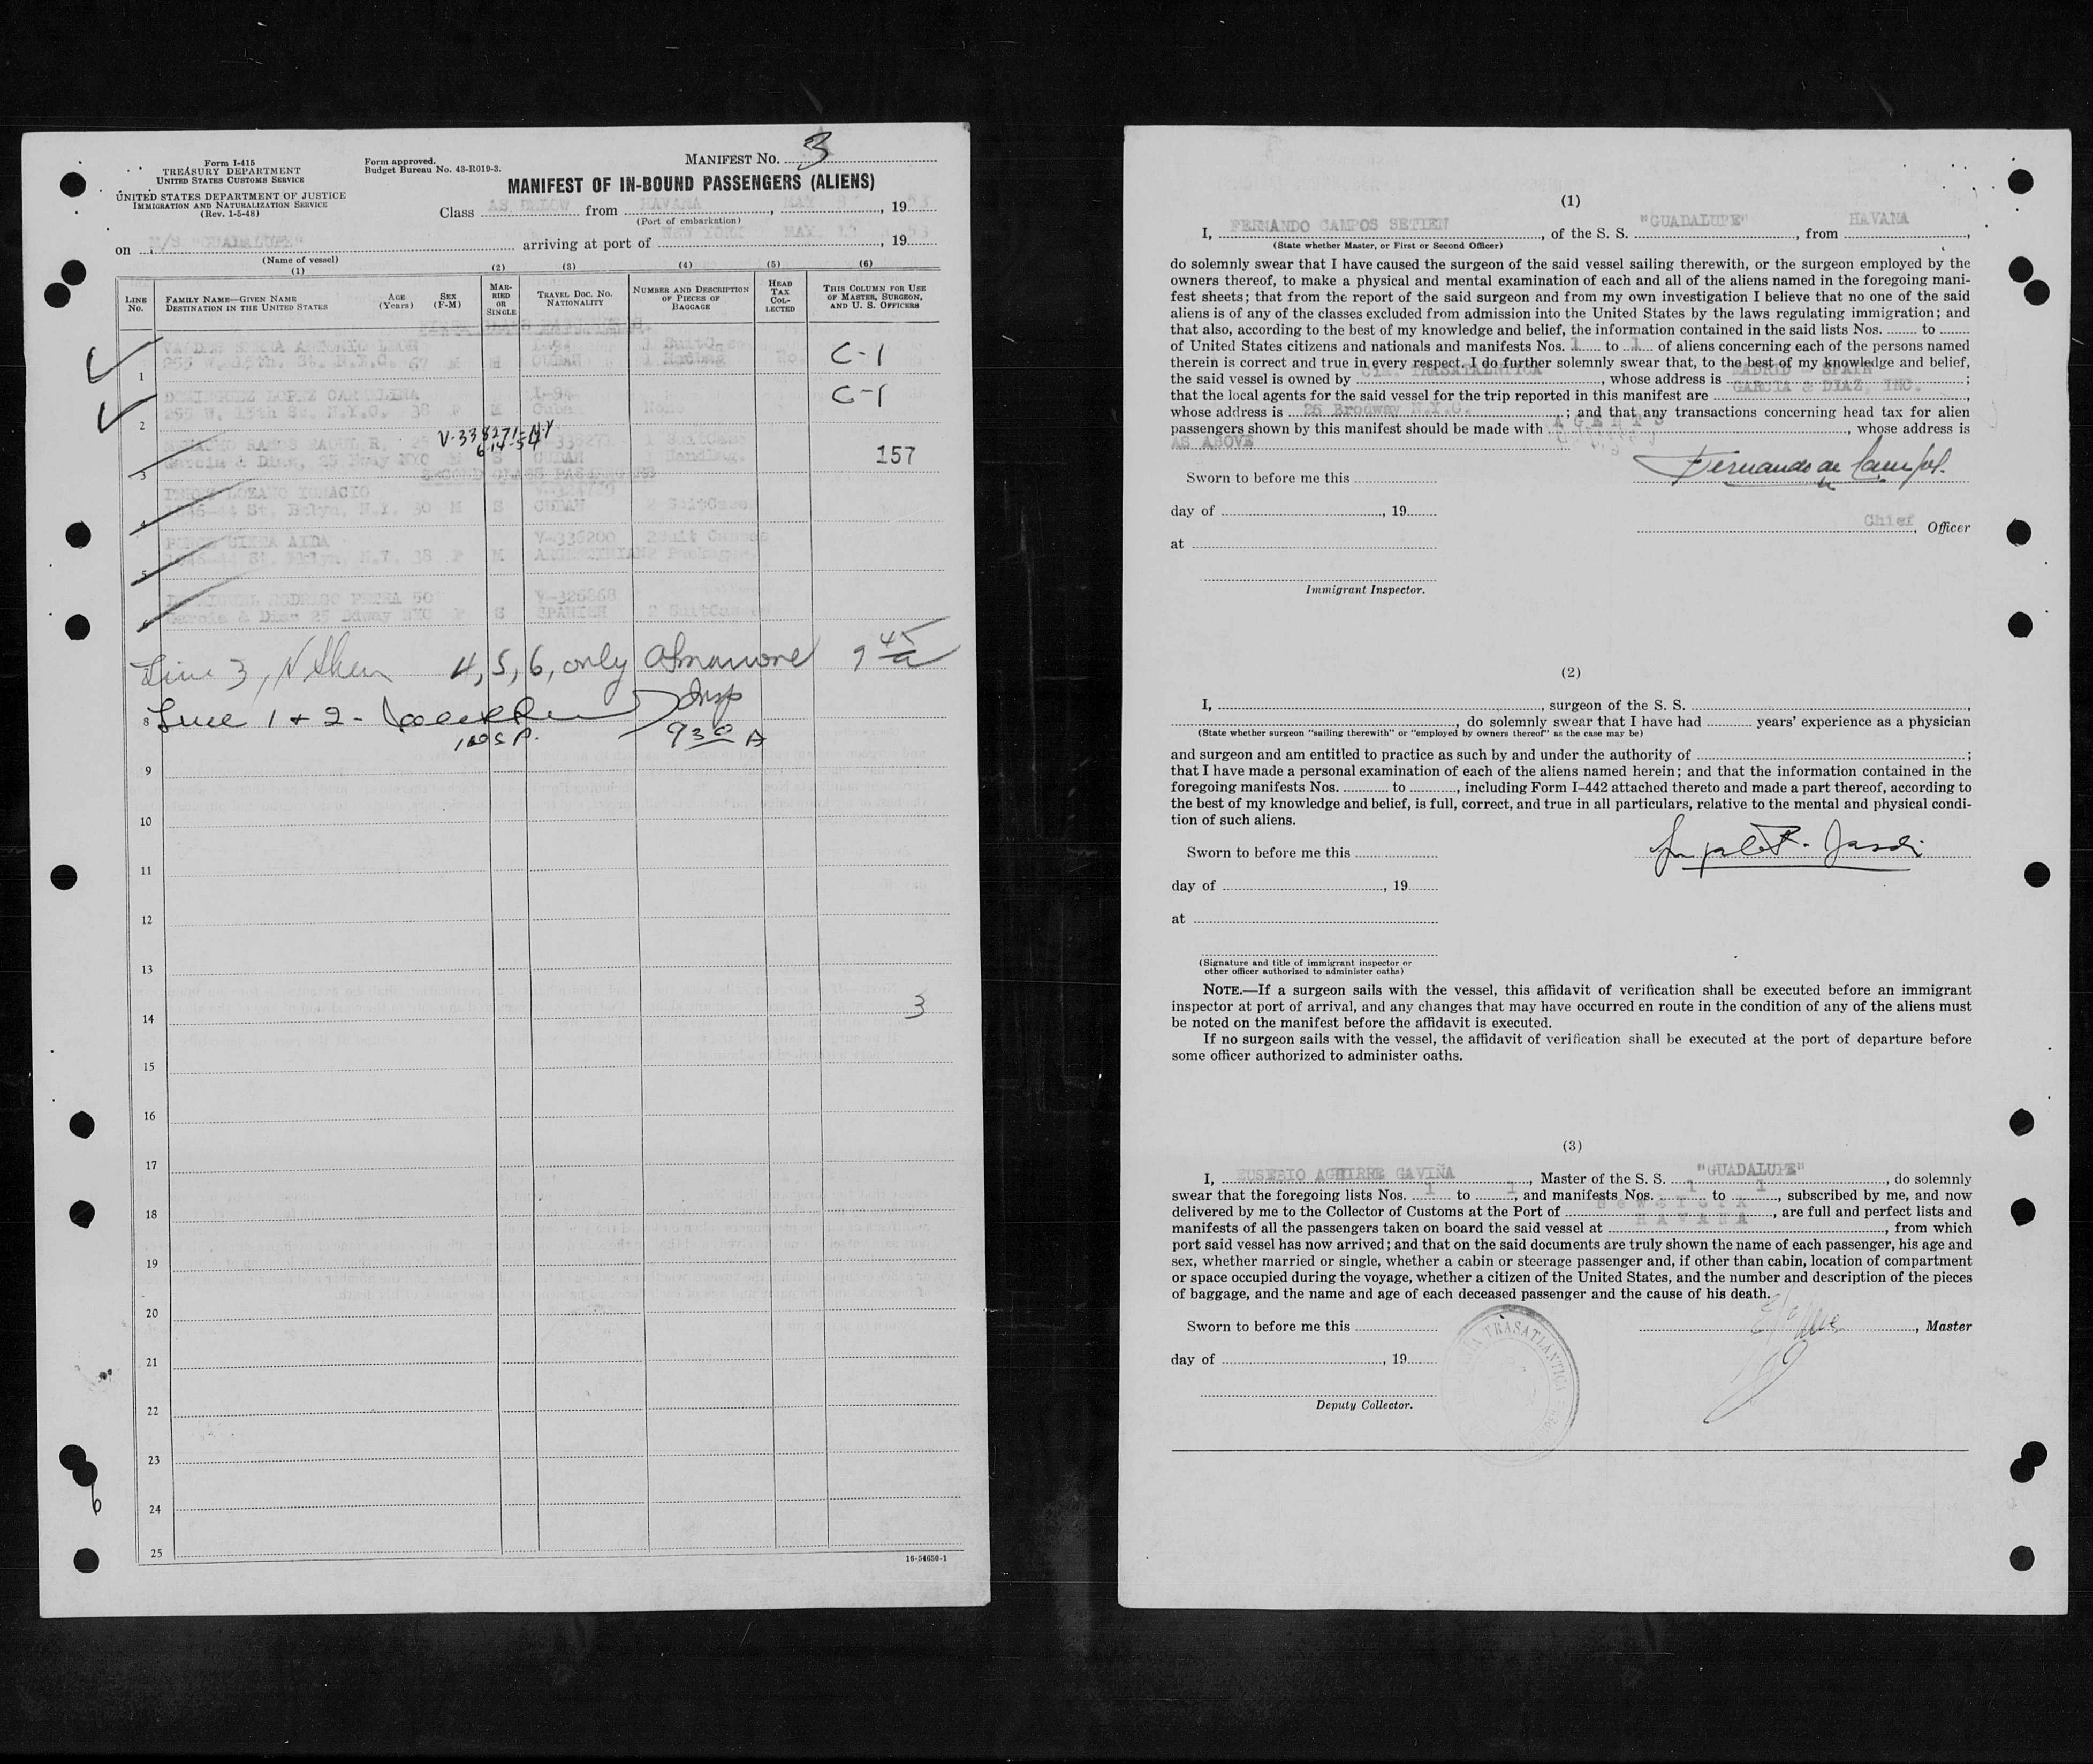 Form I-415
TREASURY DEPARTMENT
UNITED STATES CUSTOMS SERVICE
UNITED STATES DEPARTMENT OF JUSTICE
IMMIGRATION AND NATURALIZATION SERVICE
(Rev. 1-5-48)
Form approved.
Budget Bureau No. 43-R019-3.
MANIFEST NO. 3
MANIFEST OF IN-BOUND PASSENGERS (ALIENS)
Class AS BELOW from HAVANA, MAY 8, 1953
(Port of embarkation)
on M/S "GUADALUPE" arriving at port of NEW YORK MAY. 13, 1953
(Name of vessel)
(1) (2) (3) (4) (5) (6)
LINE NO. FAMILY NAME—GIVEN NAME DESTINATION IN THE UNITED STATES AGE (Years) SEX (F-M) MARRIED OR SINGLE TRAVEL DOC. NO. NATIONALITY NUMBER AND DESCRIPTION OF PIECES OF BAGGAGE HEAD TAX COLLECTED THIS COLUMN FOR USE OF MASTER, SURGEON, AND U. S. OFFICERS
I-94 C-1
255 W. 15th. St. N.Y.C. 67 M M CUBAN 1 No.
1
DOMINGUEZ LOPEZ CAROLINA I-94 C-1
255 W. 15th St. N.Y.C. 38 F M Cuba None
2
RAMOS RAOUL R. 25 V-338271-NY
Garcia & Diaz, 25 Bway NYC M S CUBAN 1 Handbag. 157
3 SECOND CLASS PASSENGERS
LOZANO IGNACIO
1046-44 St. Bklyn, N.Y. 30 M S CUBAN 2 SuitCase
4
AIDA V-336200 2 Suit Cases
1046-44 St. Bklyn, N.Y. 38 F M ARGENTINIAN 2 Package.
5
RODRIGO 50 V-326868
Garcia & Diaz 25 Bdway NYC F S SPANISH 2 SuitCases
6
Line 3, 4, 5, 6, only 9 45 a
8 Line 1 & 2 - Insp
Insp. 9 30 A
9
10
11
12
13
14 3
15
16
17
18
19
20
21
22
23
24
25
6
16-54650-1
(1)
I, FERNANDO CAMPOS SETIEN, of the S. S. "GUADALUPE", from HAVANA,
(State whether Master, or First or Second Officer)
do solemnly swear that I have caused the surgeon of the said vessel sailing therewith, or the surgeon employed by the
owners thereof, to make a physical and mental examination of each and all of the aliens named in the foregoing mani-
fest sheets; that from the report of the said surgeon and from my own investigation I believe that no one of the said
aliens is of any of the classes excluded from admission into the United States by the laws regulating immigration; and
that also, according to the best of my knowledge and belief, the information contained in the said lists Nos. ........ to ........
of United States citizens and nationals and manifests Nos. 1 to 1 of aliens concerning each of the persons named
therein is correct and true in every respect. I do further solemnly swear that, to the best of my knowledge and belief,
the said vessel is owned by CIA. TRASATALNTICA, whose address is MADRID - SPAIN;
that the local agents for the said vessel for the trip reported in this manifest are GARCIA & DIAZ, INC.,
whose address is 25 Brodway N.Y.C.; and that any transactions concerning head tax for alien
passengers shown by this manifest should be made with AGENTS, whose address is
AS ABOVE
Sworn to before me this
day of, 19
at
Chief, Officer
Immigrant Inspector.
(2)
I, , surgeon of the S. S. ,
, do solemnly swear that I have had years' experience as a physician
(State whether surgeon "sailing therewith" or "employed by owners thereof" as the case may be)
and surgeon and am entitled to practice as such by and under the authority of ;
that I have made a personal examination of each of the aliens named herein; and that the information contained in the
foregoing manifests Nos. to , including Form I-442 attached thereto and made a part thereof, according to
the best of my knowledge and belief, is full, correct, and true in all particulars, relative to the mental and physical condi-
tion of such aliens.
Sworn to before me this
day of , 19
at
(Signature and title of immigrant inspector or
other officer authorized to administer oaths)
NOTE.—If a surgeon sails with the vessel, this affidavit of verification shall be executed before an immigrant
inspector at port of arrival, and any changes that may have occurred en route in the condition of any of the aliens must
be noted on the manifest before the affidavit is executed.
If no surgeon sails with the vessel, the affidavit of verification shall be executed at the port of departure before
some officer authorized to administer oaths.
(3)
I, EUSEBIO AGUIRRE GAVIÑA, Master of the S. S. "GUADALUPE", do solemnly
swear that the foregoing lists Nos. 1 to 1, and manifests Nos. 1 to 1, subscribed by me, and now
delivered by me to the Collector of Customs at the Port of New York, are full and perfect lists and
manifests of all the passengers taken on board the said vessel at HAVANA, from which
port said vessel has now arrived; and that on the said documents are truly shown the name of each passenger, his age and
sex, whether married or single, whether a cabin or steerage passenger and, if other than cabin, location of compartment
or space occupied during the voyage, whether a citizen of the United States, and the number and description of the pieces
of baggage, and the name and age of each deceased passenger and the cause of his death.
Sworn to before me this
day of , 19
, Master
TRASATLÁNTICA
Deputy Collector.